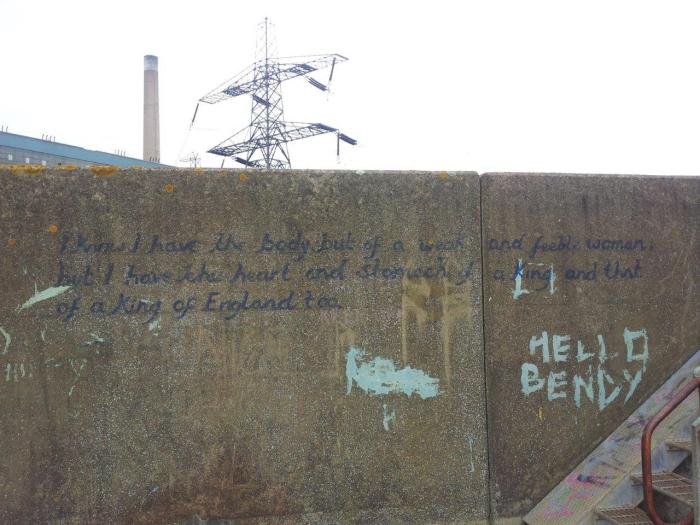 I know I have the body but of a weak and feeble woman;
but I have the heart and stomach of a king and that
of a King of England too.
HELLO
BENDY